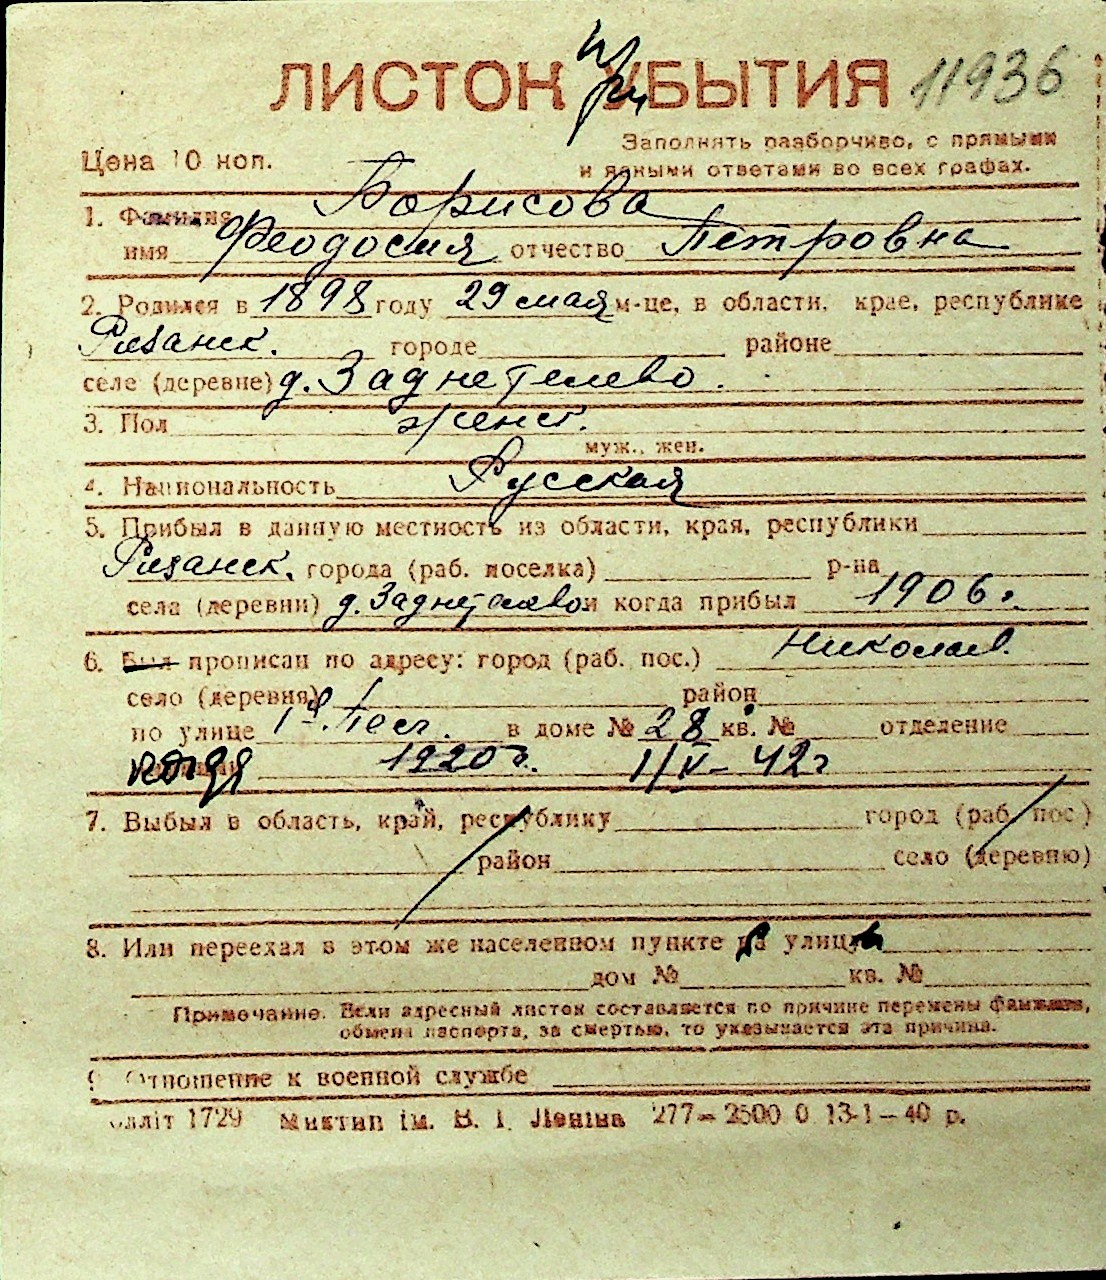 ЛИСТОК при УБЫТИЯ 11936
Цена 10 коп. Заполнять разборчиво, с прямыми
и ясными ответами во всех графах.
1. Фамилия Борисова
имя Феодосия отчество Петровна
2. Родился в 1898 году 29 мая м-це, в области, крае, республике
Рязанск. городе районе
селе (деревне) д. Заднетелево.
3. Пол женск.
муж., жен.
4. Национальность Русская
5. Прибыл в данную местность из области, края, республики
Рязанск. города (раб. поселка) р-на
села (деревни) д. Заднетелево и когда прибыл 1906.
6. Был прописан по адресу: город (раб. пос.) Николаев.
село (деревня) район
по улице 1я Песч. в доме № 28 кв. № отделение
когда 1920 г. 1/IV - 42 г
7. Выбыл в область, край, республику город (раб. пос.)
район село (деревню)
8. Или переехал в этом же населенном пункте на улицу
дом № кв. №
Примечание. Если адресный листок составляется по причине перемены фамилии,
обмена паспорта, за смертью, то указывается эта причина.
9. Отношение к военной службе
лліт 1729 Миктип ім. В. І. Леніна 277—2500 0 13-1—40 р.